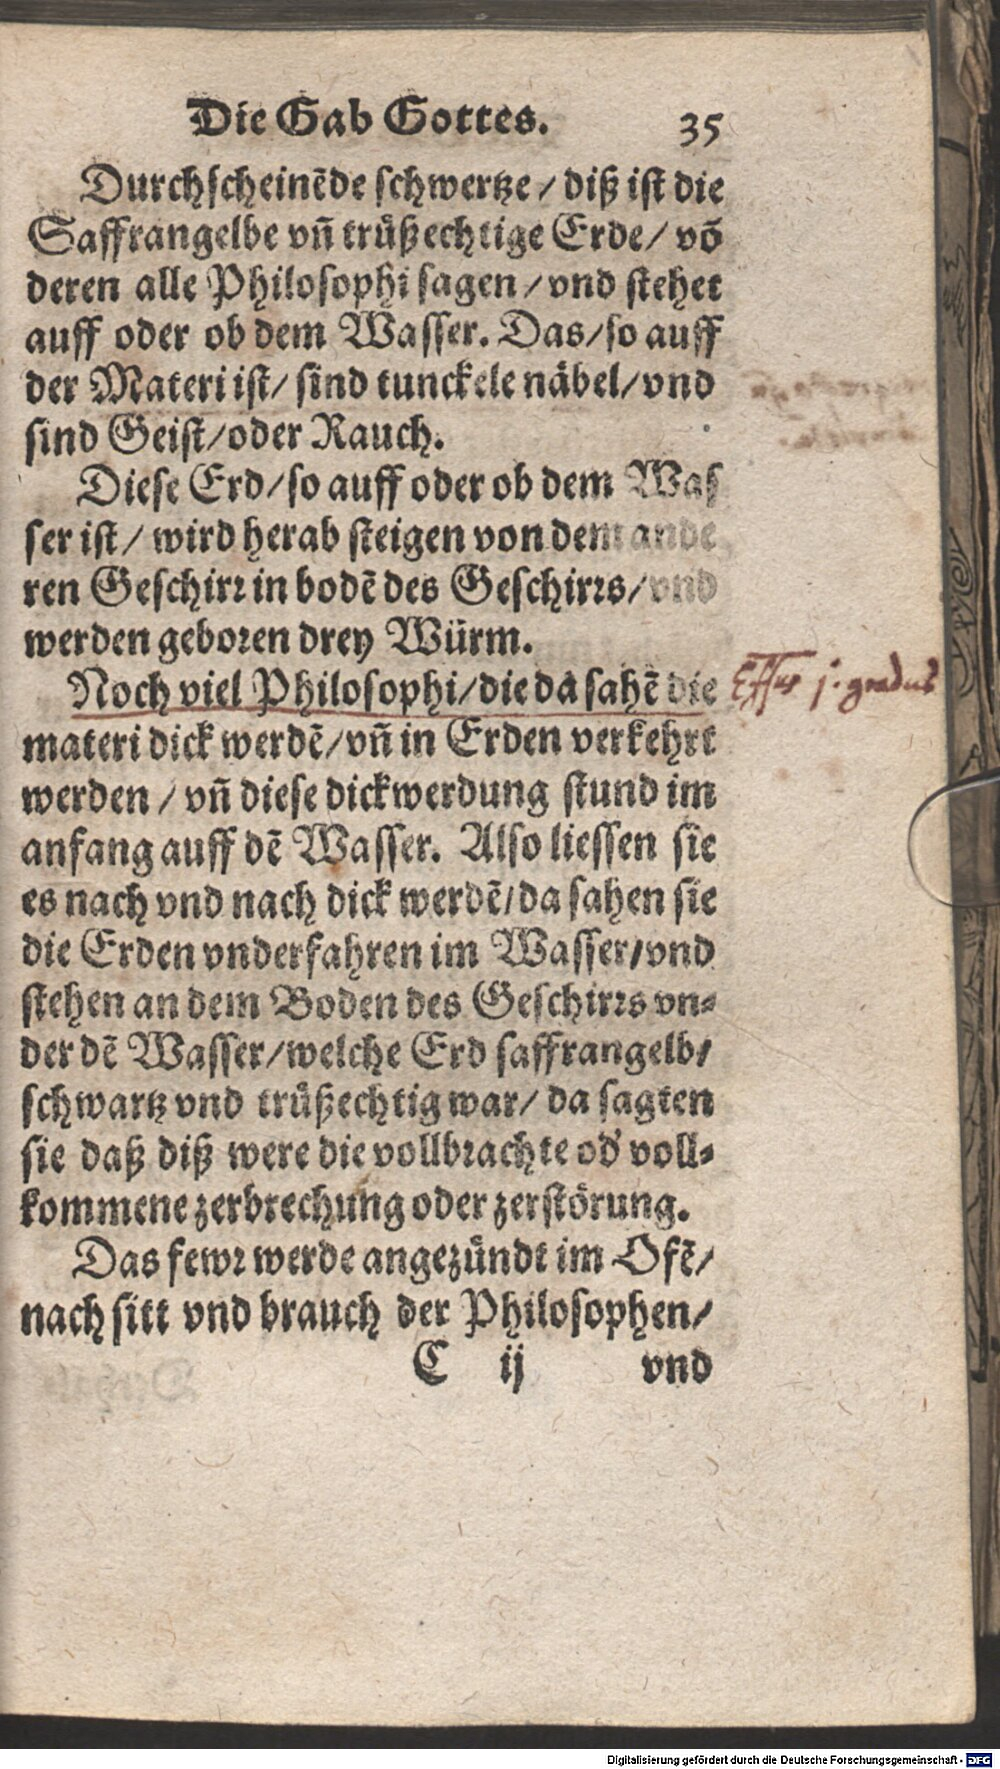 Die Gab Gottes. 35
Durchscheinēde schwertze / diß ist die
Saffrangelbe vñ trůßechtige Erde / vō
deren alle Philosophi sagen / vnd stehet
auff oder ob dem Wasser. Das / so auff
der Materi ist / sind tunckele nåbel / vnd
sind Geist / oder Rauch.
Diese Erd / so auff oder ob dem Was
ser ist / wird herab steigen von dem ande
ren Geschirr in bodē des Geschirrs / vnd
werden geboren drey Würm.
Noch viel Philosophi / die da sahē die
materi dick werdē / vñ in Erden verkehrt
werden / vñ diese dickwerdung stund im
anfang auff dē Wasser. Also liessen sie
es nach vnd nach dick werdē / da sahen sie
die Erden vnderfahren im Wasser / vnd
stehen an dem Boden des Geschirrs vn-
der dē Wasser / welche Erd saffrangelb /
schwartz vnd trůßechtig war / da sagten
sie daß diß were die vollbrachte od' voll-
kommene zerbrechung oder zerstörung.
Das fewr werde angezůndt im Ofē /
nach sitt vnd brauch der Philosophen /
C ij vnd
j. gradus
Digitalisierung gefördert durch die Deutsche Forschungsgemeinschaft - DFG